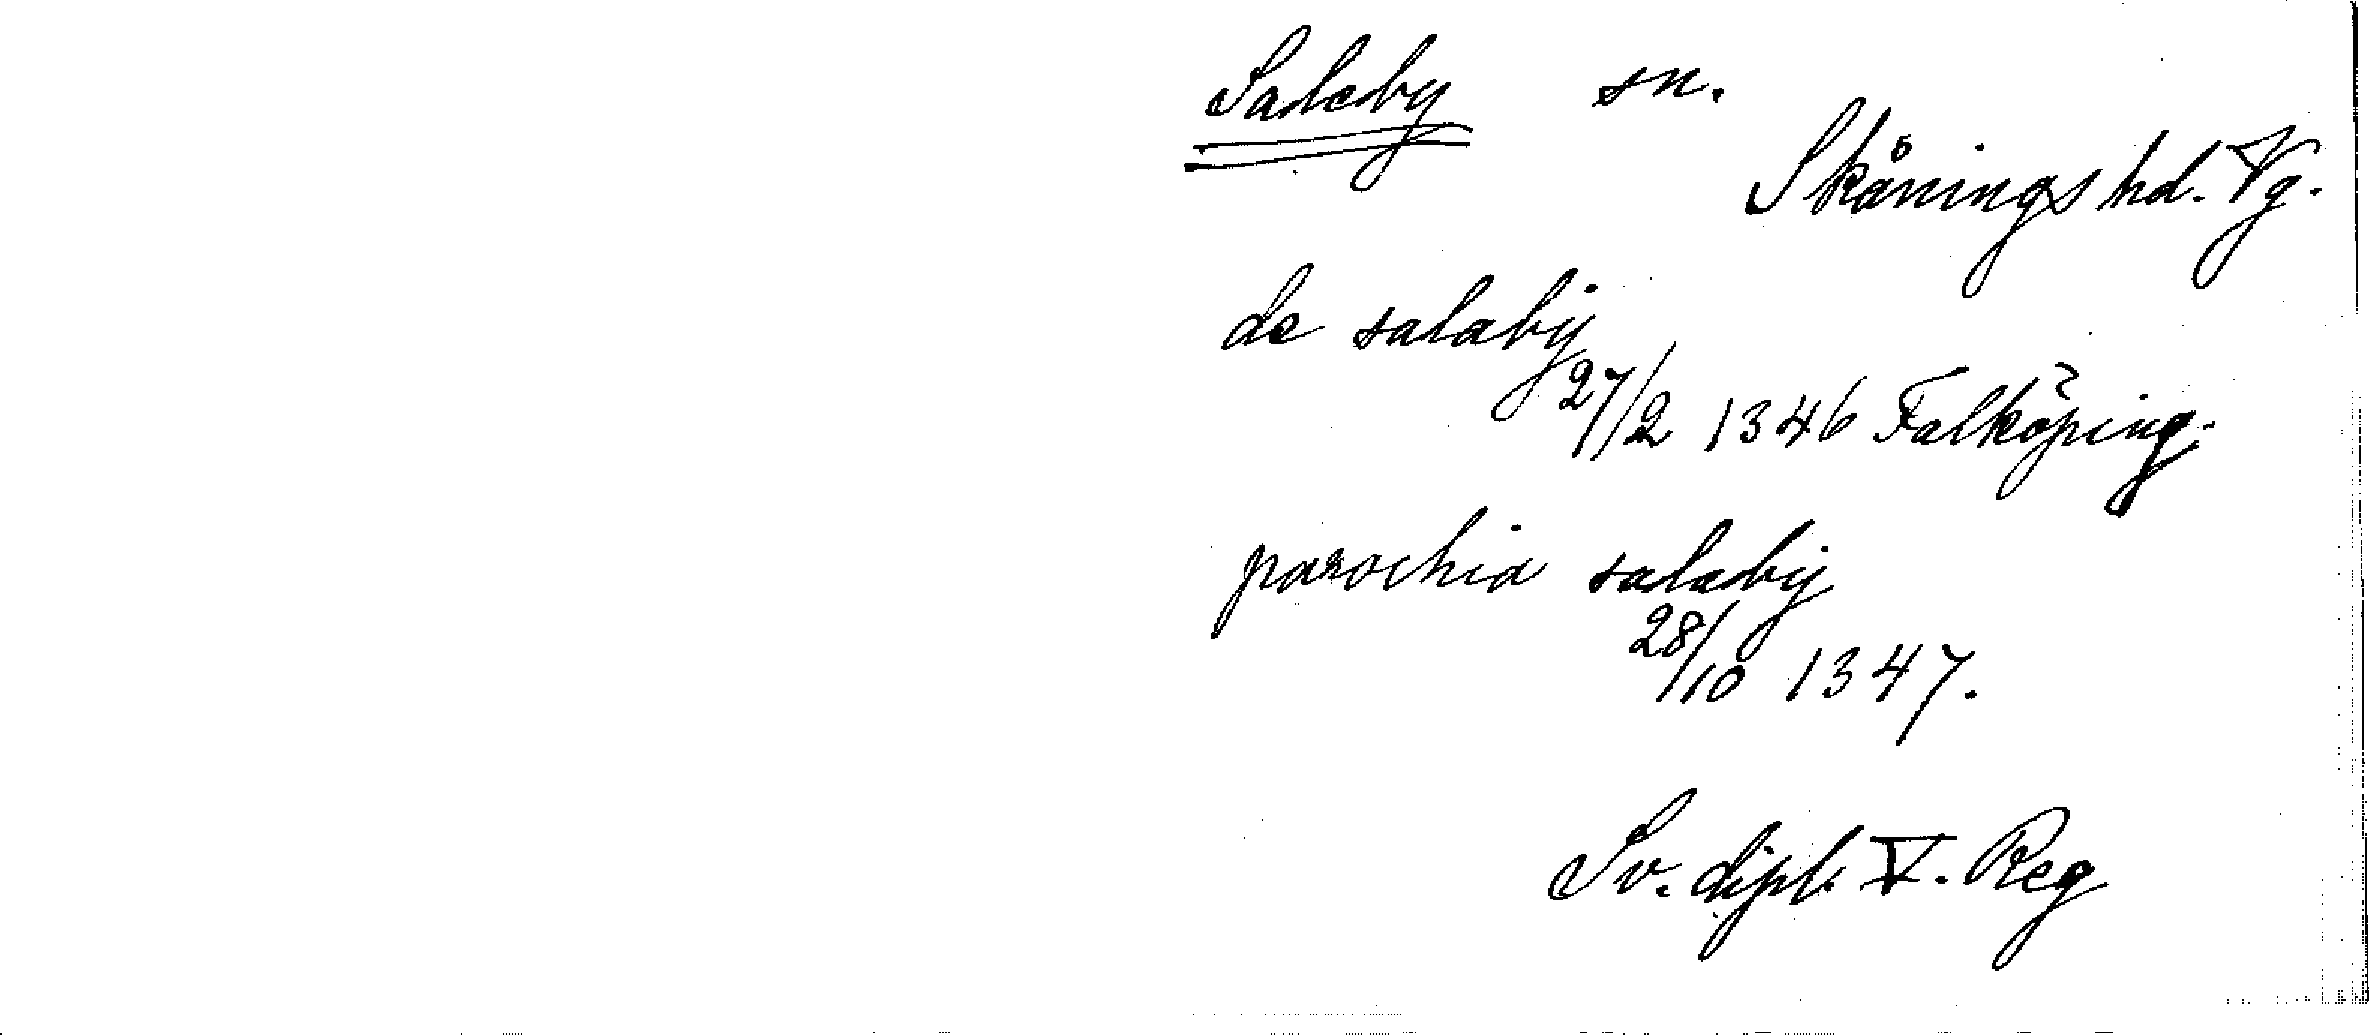 Saleby sn.
Skånings hd. Vg.
de salabij
27/2 1346 Falköping.
parochia salabij
28/10 1347.
Sv. dipl. V. Reg